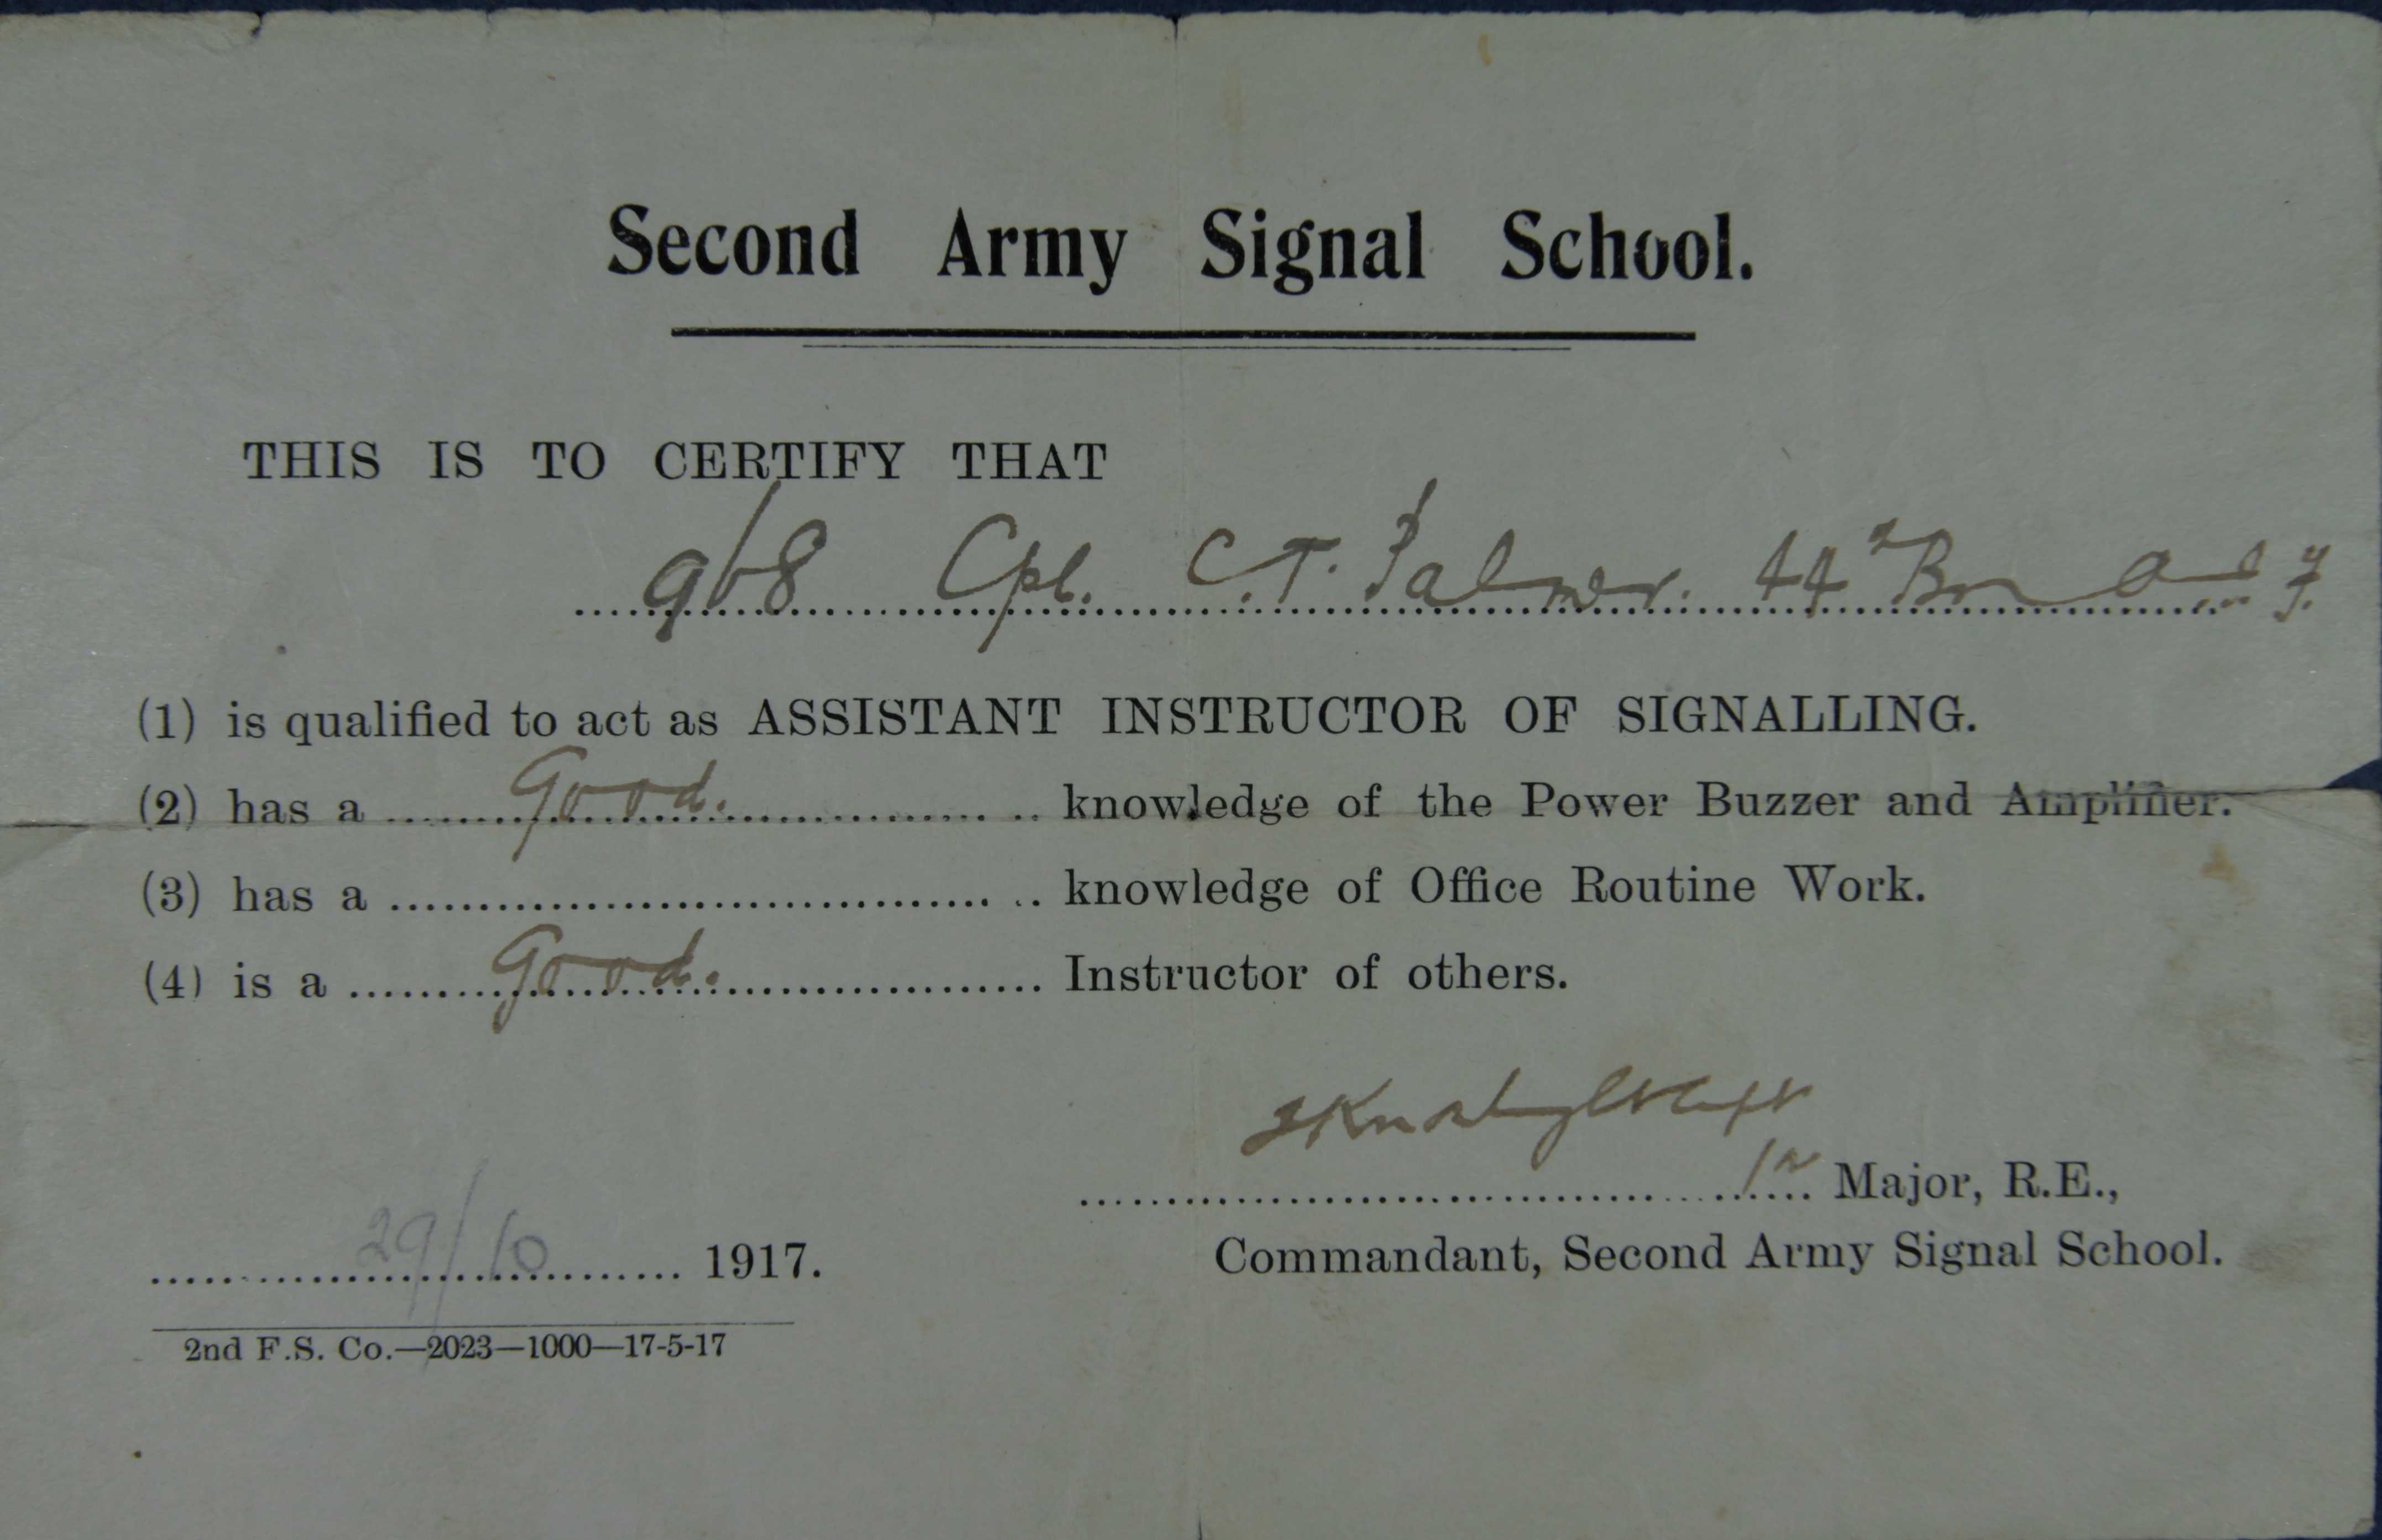 Second Army Signal School.
THIS IS TO CERTIFY THAT
968 Cpl. C.T. Palmer. 44 Bn
(1) is qualified to act as ASSISTANT INSTRUCTOR OF SIGNALLING.
(2) has a Good. knowledge of the Power Buzzer and Amplifier.
(3) has a knowledge of Office Routine Work.
(4) is a Good. Instructor of others.
Major, R.E.,
29/10 1917.
Commandant, Second Army Signal School.
2nd F.S. Co.—2023—1000—17-5-17